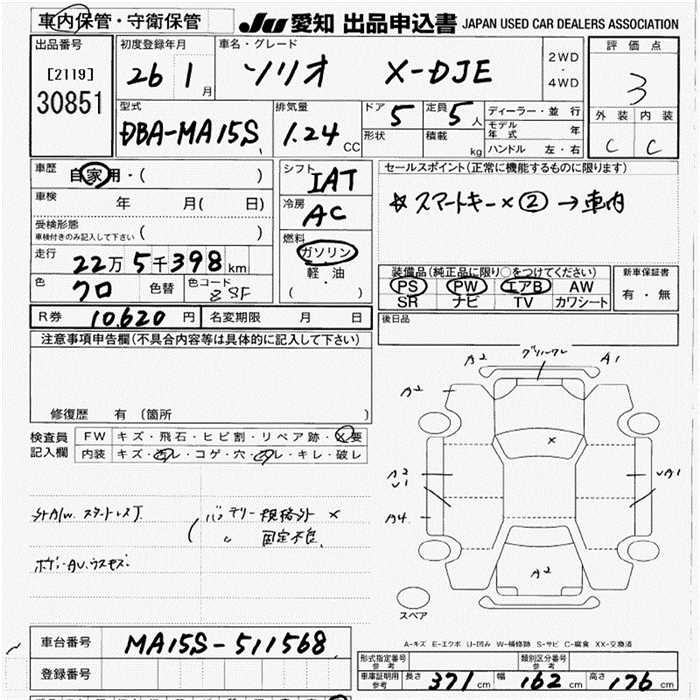 車内保管・守衛保管 JU 愛知 出品申込書 JAPAN USED CAR DEALERS ASSOCIATION
出品番号 初度登録年月 車名・グレード 評価点
[2119] 26 1月 ソリオ X-DJE 2WD・4WD 3
30851
型式 排気量 ドア 5 定員 5人 ディーラー・並行 外装 内装
DBA-MA15S 1.24CC 形状 積載 kg モデル年式 年 C C
ハンドル 左・右
車歴 自家用・( ) シフト IAT セールスポイント(正常に機能するものに限ります)
車検 年 月( 日) 冷房 AC ☆ スマートキー×② →車内
受検形態
車検付きのみ記入して下さい ( ) 燃料
走行 22万5千398km ガソリン 装備品(純正品に限り○をつけてください) 新車保証書
色 クロ 色替 色コード 軽・油 PS PW エアB AW 有・無
( ) SR ナビ TV カワシート
R券 10,620円 名変期限 月 日 後日品
注意事項申告欄(不具合内容等は具体的に記入して下さい)
修復歴 有(箇所 )
検査員記入欄 FW キズ・飛石・ヒビ割・リペア跡・X要
内装 キズ・汚レ・コゲ・穴・スレ・キレ・破レ
A2 A1
A2
×
A2
U1
A4
A2
バッテリー規格外 ×
〃 固定不良
スペア
A-キズ E-エクボ U-凹み W-補修跡 S-サビ C-腐食 XX-交換済
車台番号 MA15S-511568
登録番号
形式指定番号参考 類別区分番号参考
車庫証明用参考 長さ 371cm 幅 162cm 高さ 176cm